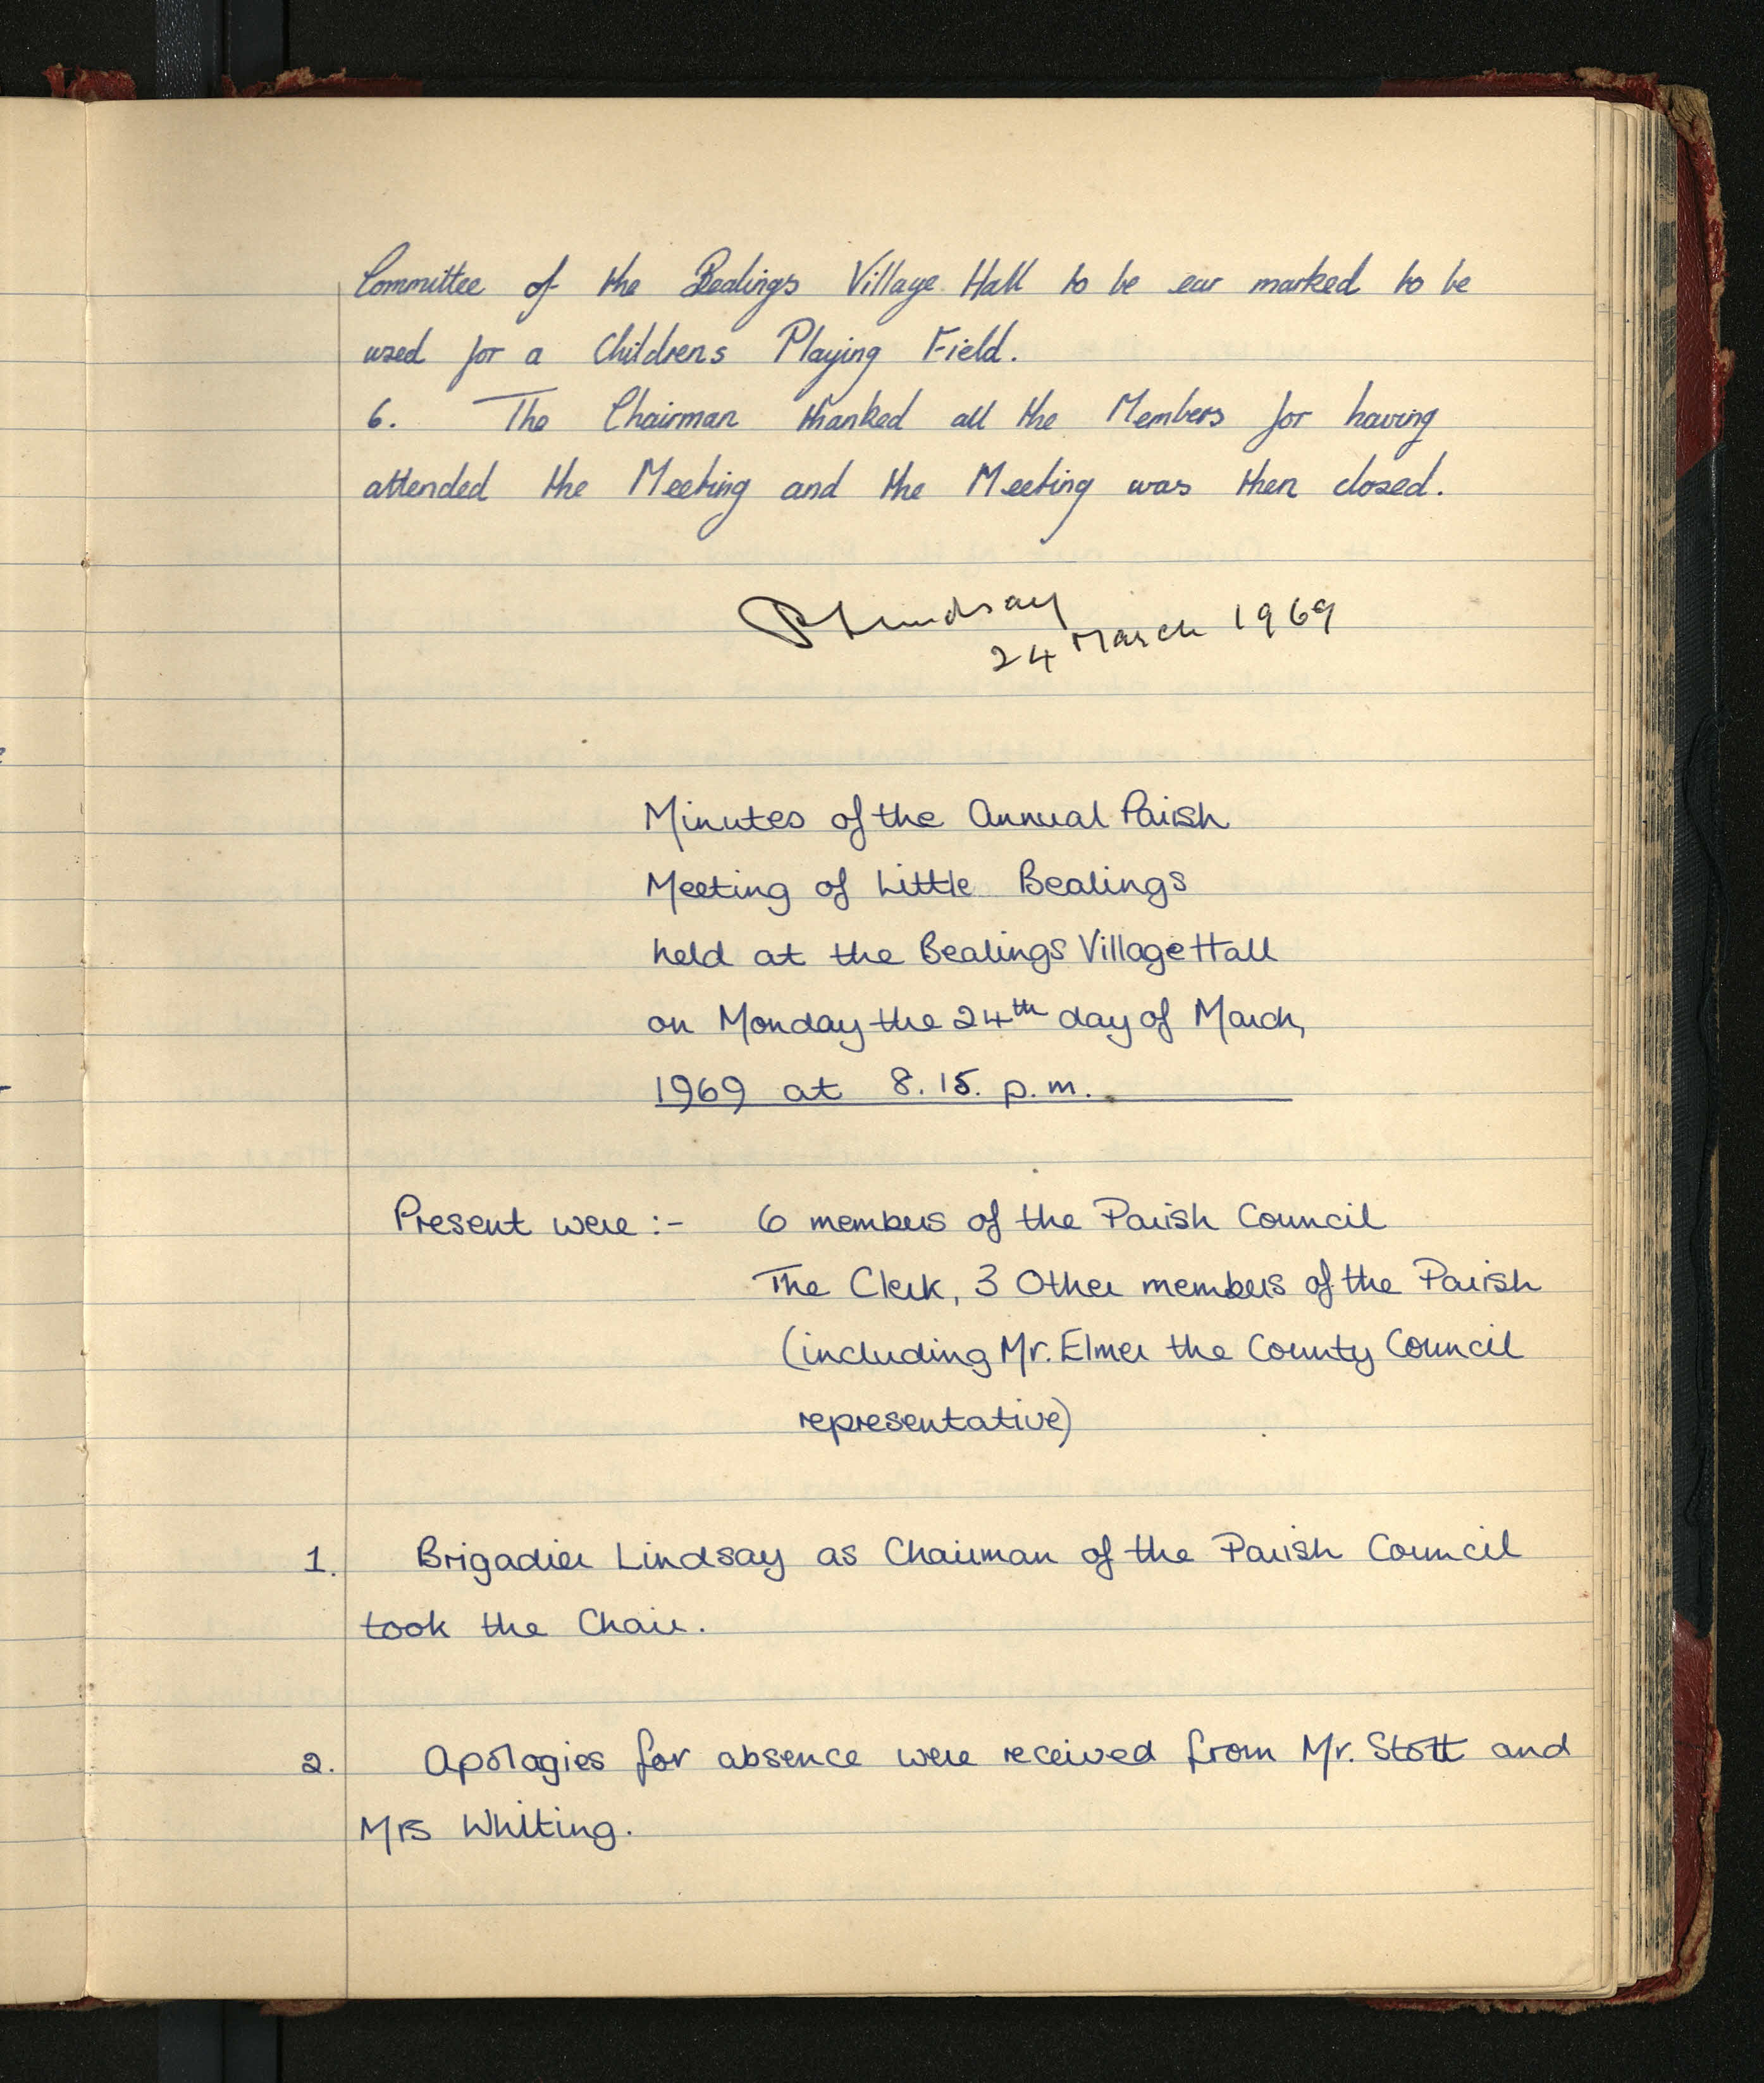 Committee of the Bealings Village Hall to be ear marked to be
used for a Childrens Playing Field.
6. The Chairman thanked all the Members for having
attended the Meeting and the Meeting was then closed.
Lindsay
24 March 1969
Minutes of the Annual Parish
Meeting of Little Bealings
held at the Bealings Village Hall
on Monday the 24th day of March,
1969 at 8.15. p.m.
Present were :- 6 members of the Parish Council
The Clerk, 3 Other members of the Parish
(including Mr. Elmer the County Council
representative)
1. Brigadier Lindsay as Chairman of the Parish Council
took the Chair.
2. Apologies for absence were received from Mr. Stott and
Mrs Whiting.